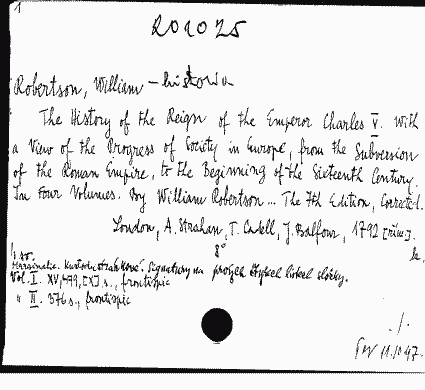 1
R01025
Robertson, William - historia
The History of the Reign of the Emperor Charles V. With
a View of the Progress of Society in Europe, from the Subversion
of the Roman Empire, to the Beginning of the Sixteenth Century.
In Four Volumes. By William Robertson ... The 7th Edition, Corrected.
London, A. Strahan, T. Cadell, J. Balfour, 1792 [rím].
8°
Marginalie. Kustody stránkové. Signatury na
Vol. I. XV, 479, [X] s., frontispic
" II. 576 s., frontispic
./.
11.10.47.